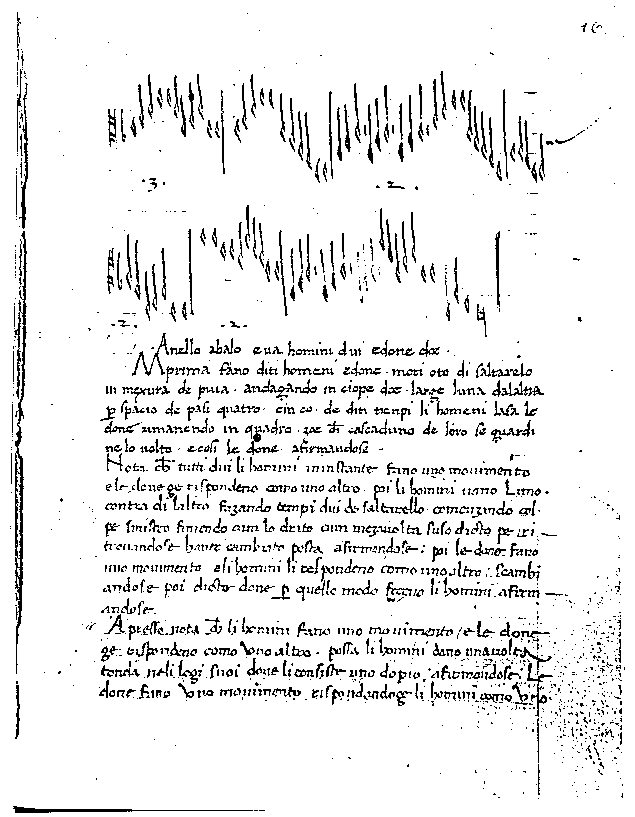 16
·3· ·2·
·2· ·2·
Anello abalo e va homini dui e done doe ·
M prima fano diti homeni e done · moti oto di saltarelo
in mexura de piva · andagando in ciope doe · large luna dalaltra
p spacio de pasi quatro · ein co · de diti tienpi li homeni lasa le
done rimanendo in quadro · zoe ch cascaduno de loro se guardi
ne lo volto · e cosi le done · afirmandose ·
Nota ch tutti dui li homini in instante fano uno movimento
e le done ge rispondeno como uno altro · poi li homini vano luno ·
contra di laltro fazando tempi dui de saltarello comenzando col
pe sinistro finiendo cum lo drito cum mezavolta suso dicto pe ri
trovandose haver cambiato posta afirmandose : poi le done fano
uno movimento e li homini li respondeno como uno altro : Scambi
andose poi dicte done p quello modo feceno li homini afirm
andose.
Apresso nota ch li homini fano uno movimento / e le done
ge rispondeno como uno altro · possa li homini dano una volta
tonda neli logi suoi done li consiste uno dopio : afirmandose : Le
done fano uno movimento rispondandoge li homini como uno